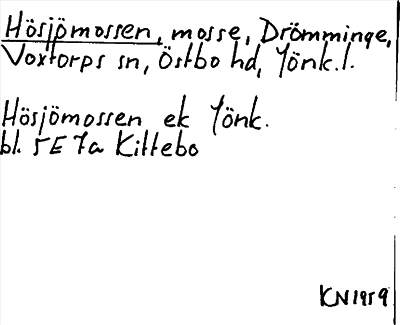 Hösjömossen, mosse, Drömminge,
Voxtorps sn, Östbo hd, Jönk.l.
Hösjömossen ek Jönk.
bl. 5E 7a Kittebo
KN1959